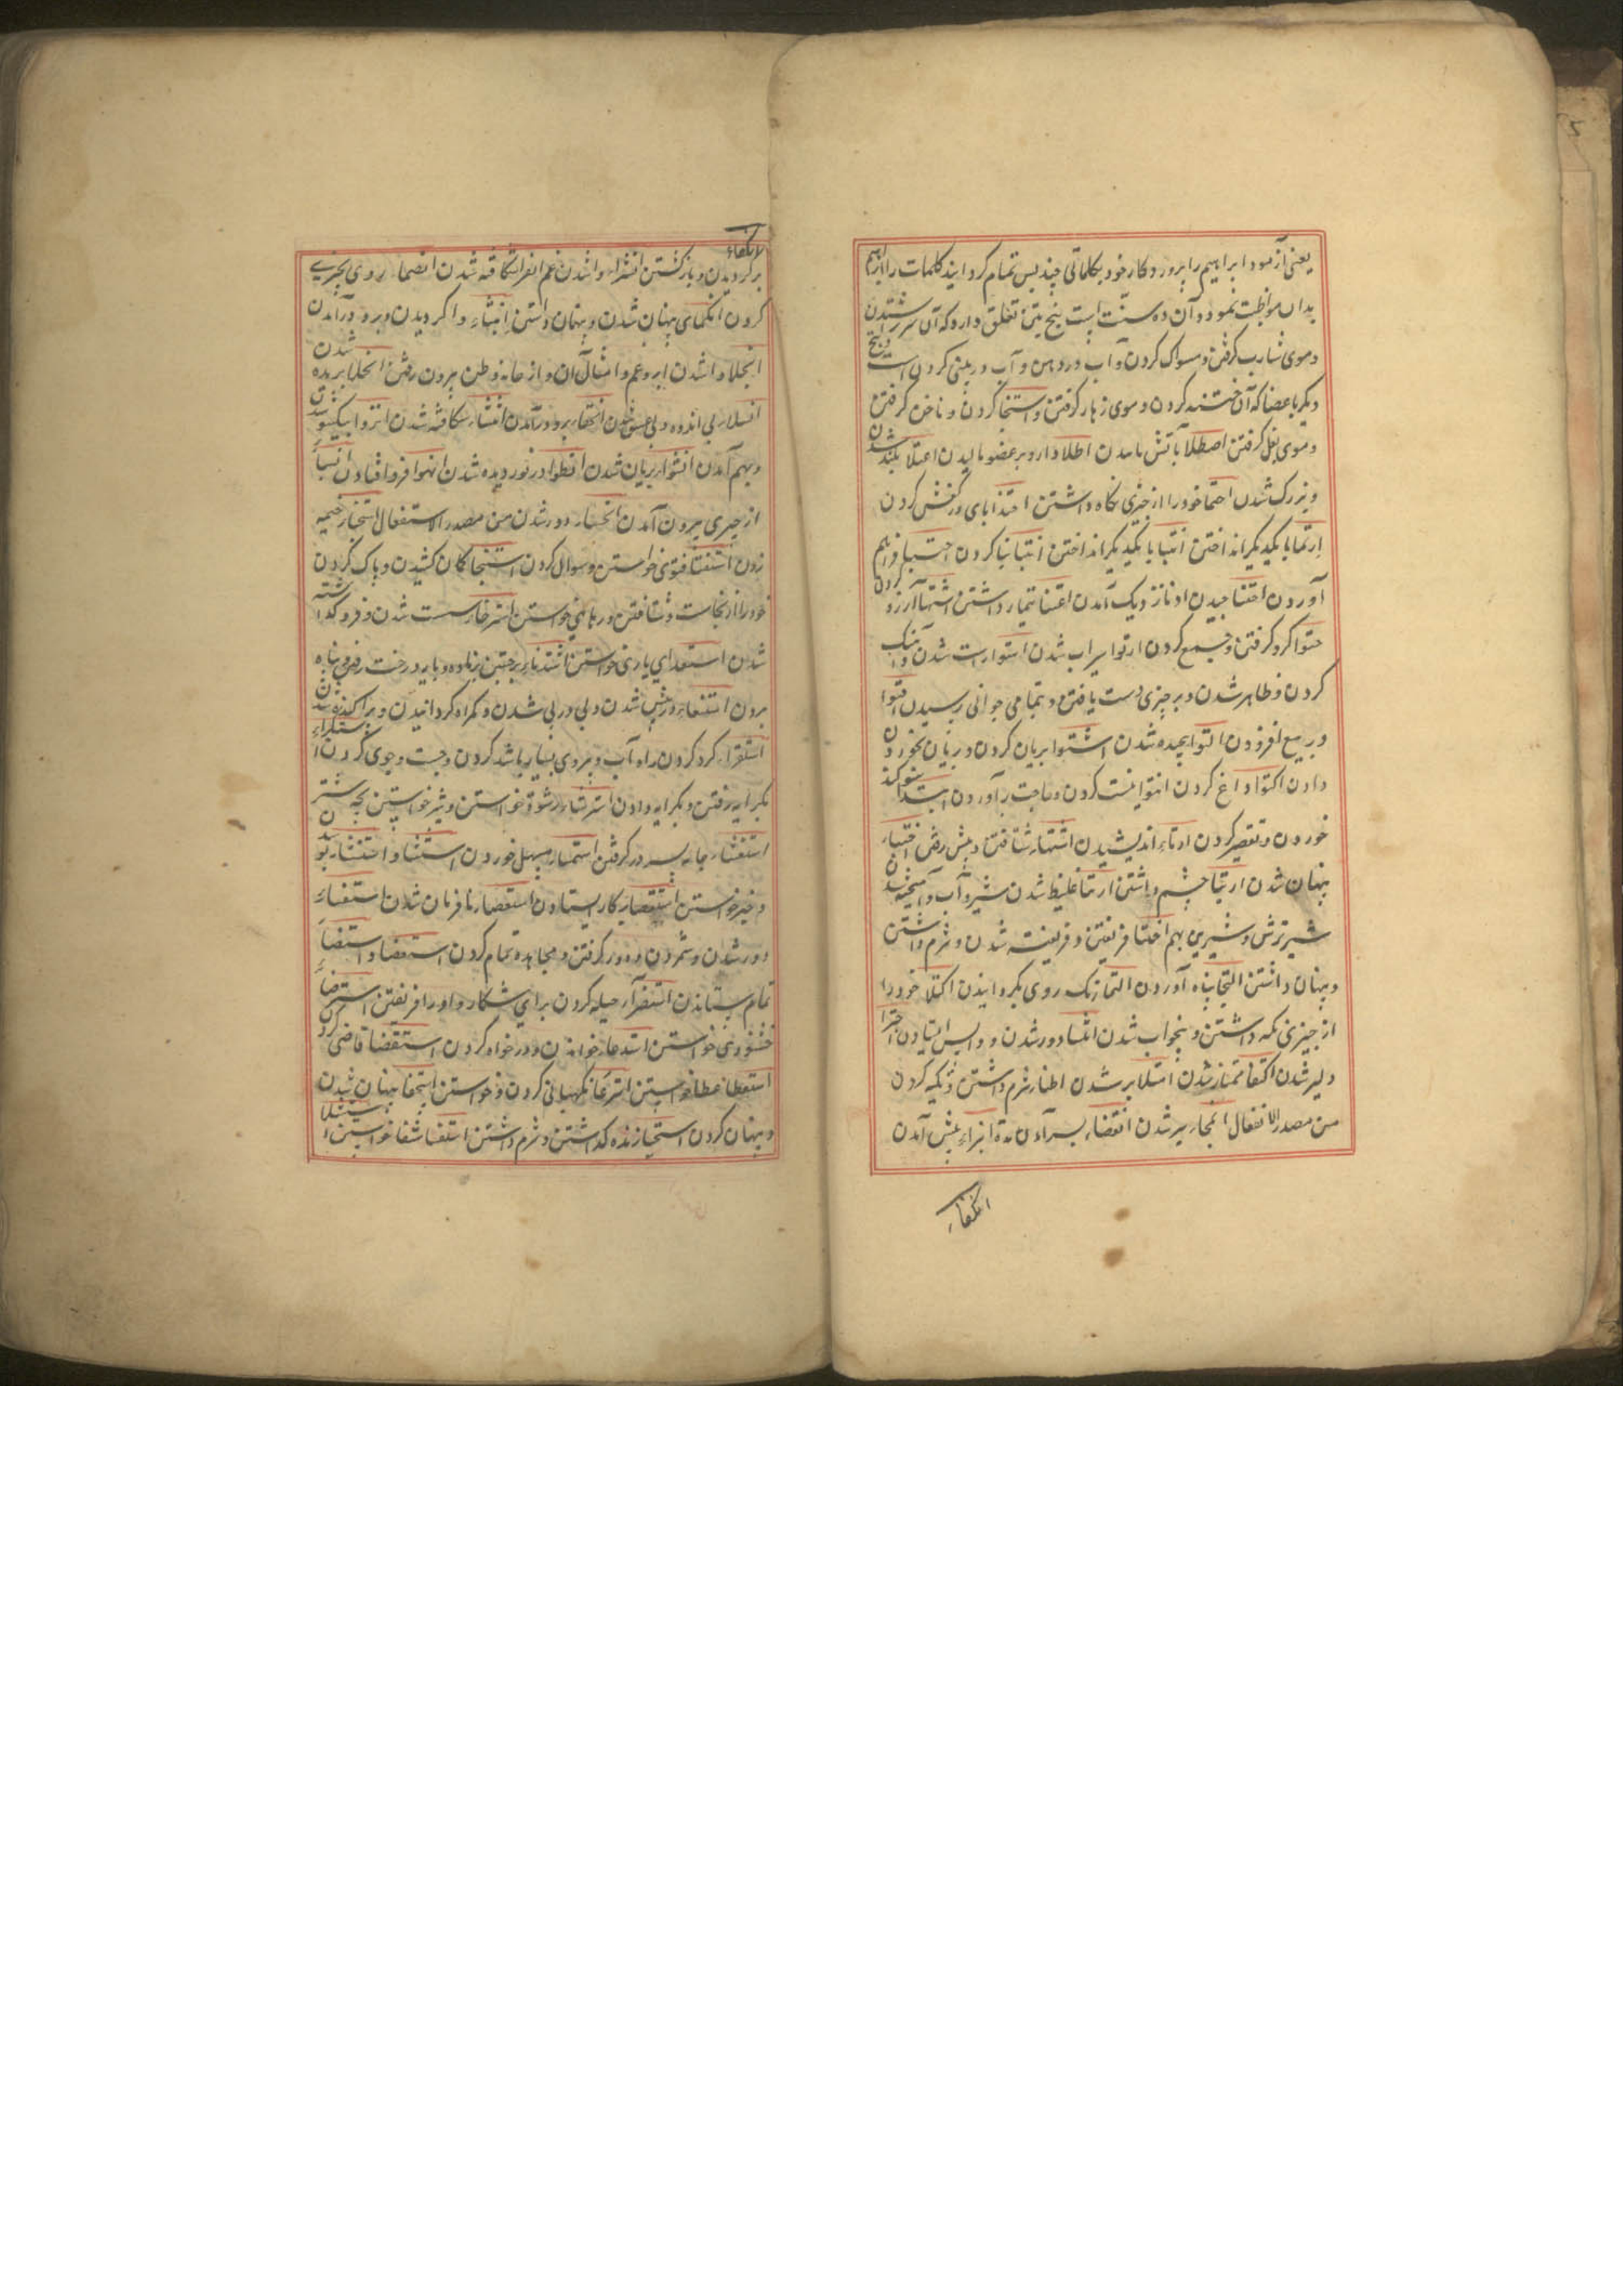 یعنی آزمود ابراهیم را پرورد کار خود بکلماتی چند پس تمام کرد ایند کلمات را ابراهیم
بدان مواظبت نمود و آن ده سنت است پنج بتن تعلق دارد که آن سر شستن
و موی شارب کرفتن و مسواک کردن و آب در دهن و آب در بینی کردن است و پنج
دیکر باعضا که آن ختنه کردن و موی زهار کرفتن و استنجا کردن و ناخن کرفتن
و موی بغل کرفتن اصطلا بآتش اطلا دارو بر عضو مالیدن اعتلا بلند شدن
و بزرک شدن احتما خود را از چیزی نکاه داشتن احتذا بای در کفش کردن
ارتما با یکدیکر انداختن انتبا با یکدیکر انداختن ابتنا بنا کردن احتبا فراهم
آوردن اجتنا چیدن ادنا نزدیک آمدن اعتنا تیمار داشتن اشتها آرزو کردن
احتوا کرد کرفتن و جمع کردن ارتوا سیراب شدن استوا راست شدن و آهنک
کردن و ظاهر شدن و بر چیزی دست یافتن و بتمامی جوانی رسیدن اقتوا
در بیع افزودن التوا پیچیده شدن اشتوا بریان کردن و بریان بخوردن
دادن اکتوا داغ کردن انتوا نیت کردن و حاجت برآوردن ابتدا سوکند
خوردن و تقصیر کردن ارتاء اندیشیدن اشتهار شتافتن و پیش رفتن اختباء
پنهان شدن ارتجا چشم داشتن ارتغا غلیظ شدن شیر و آب و آمیخته شدن
شیر ترش و شیرین بهم اختتا فریفتن و فریفته شدن و شرم داشتن
و پنهان داشتن التجا پناه آوردن التما رنک روی بکردانیدن اکتلا خود را
از چیزی نکه داشتن و بیخواب شدن انتسا دور شدن و واپس ایستادن اجترا
دلیر شدن اکتفا ممتاز شدن امتلا پر شدن اطنا شرم داشتن و تکیه کردن
من مصدر الانفعال انجاء پر شدن انقضاء بسر آمدن مدة انبراء پیش آمدن
انکفاء
لانکفاء
برکردیدن و باز کشتن انشراء وا شدن غم انفرا شکافته شدن انضما روی بچیزی
کردن انکمای پنهان شدن و پنهان داشتن انثناء وا کردیدن و برو درآمدن
انجلا وا شدن ابر و غم و امثال آن و از خانه و وطن بیرون رفتن انخلا بریده شدن
انسلا بی اندوه و بی عشق شدن برو درآمدن انشاء شکافته شدن انزوا بیکسو شدن
و بهم آمدن انشواء بریان شدن انطوا در نوردیده شدن انهوا فرو افتادن انسیاء
از چیزی بیرون آمدن دور شدن من مصدر الاستفعال استخباء خیمه
زدن استفتا فتوی خواستن و سوال کردن استنجا کمان کشیدن و پاک کردن
خود را از نجاست و شتافتن و رهایی خواستن استرخاء سست شدن و فرو کذاشته
شدن استعدای یاری خواستن استذناء بر جستن نر بماده و بسایه درخت رفتن و پناه
بردن استتباء در پیش شدن و پی در پی شدن و کمراه کردانیدن و پراکنده شدن
استقراء کرد کردن ماه آب و پیروی بسیار باشد کردن و جست و جوی کردن استکراء
بکرایه رفتن و بکرایه دادن استرشاء رشوة خواستن و شیر خواستن بچه شتر
استغشاء جامه بسر در کرفتن استمشاء مسهل خوردن استنشاء و استنشاء بو
و خبر خواستن استقصاء بکار ایستادن استعصاء نافرمان شدن استقصاء
دور شدن و شمردن و دور کرفتن و مجاهده تمام کردن استقصا و استیفاء
تمام ستاندن استنضراء حیله کردن برای شکار و او را فریفتن استرضاء
خشنودی خواستن استدعا خواندن و درخواه کردن استقضا قاضی کردن
استعطا عطا خواستن استرعا نکهبانی کردن و خواستن استخفا پنهان شدن
و پنهان کردن استحیا زنده کذاشتن و شرم داشتن استشفا شفا خواستن استیلا